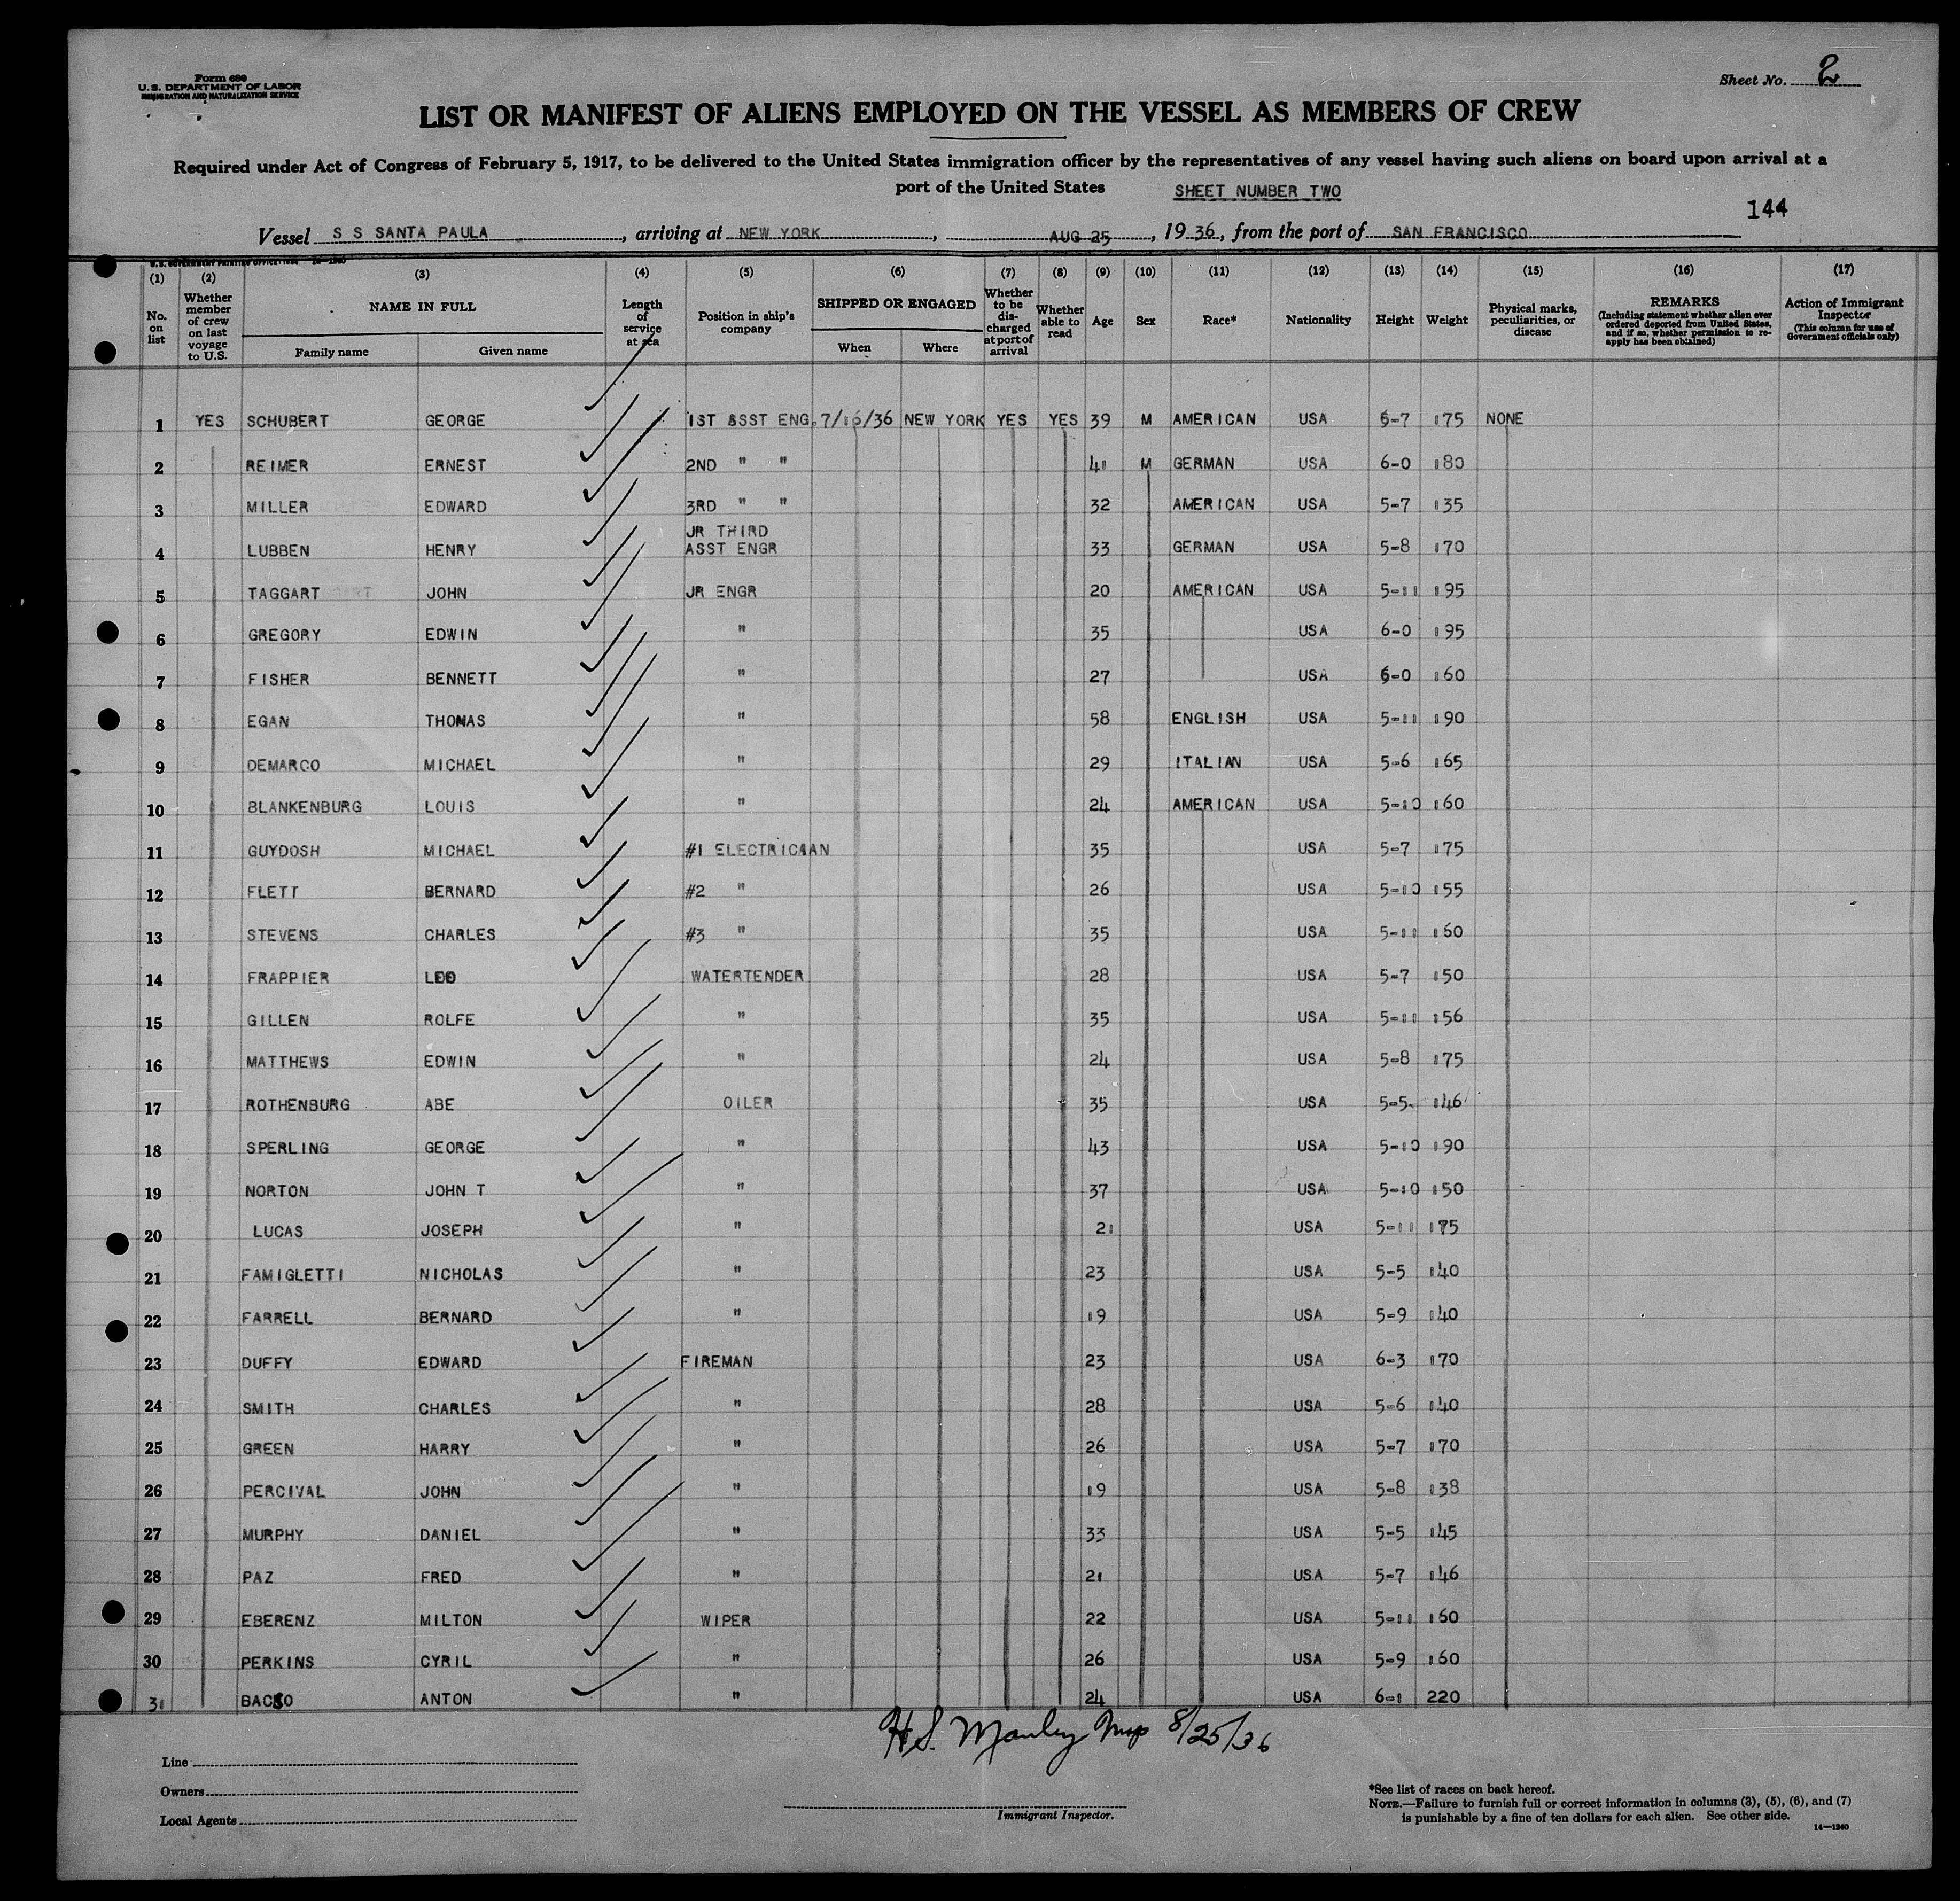 Form 680
U.S. DEPARTMENT OF LABOR
IMMIGRATION AND NATURALIZATION SERVICE
Sheet No. 2
LIST OR MANIFEST OF ALIENS EMPLOYED ON THE VESSEL AS MEMBERS OF CREW
Required under Act of Congress of February 5, 1917, to be delivered to the United States immigration officer by the representatives of any vessel having such aliens on board upon arrival at a
port of the United States SHEET NUMBER TWO
144
Vessel S S SANTA PAULA, arriving at NEW YORK, AUG 25, 1936, from the port of SAN FRANCISCO
(1) (2) (3) (4) (5) (6) (7) (8) (9) (10) (11) (12) (13) (14) (15) (16) (17)
No. on list
Whether member of crew on last voyage to U.S.
NAME IN FULL
Family name Given name
Length of service at sea
Position in ship's company
SHIPPED OR ENGAGED
When Where
Whether to be discharged at port of arrival
Whether able to read
Age Sex Race* Nationality Height Weight
Physical marks, peculiarities, or disease
REMARKS
(Including statement whether alien ever ordered deported from United States, and if so, whether permission to reapply has been obtained)
Action of Immigrant Inspector
(This column for use of Government officials only)
1 YES SCHUBERT GEORGE 1ST ASST ENG. 7/16/36 NEW YORK YES YES 39 M AMERICAN USA 5-7 175 NONE
2 REIMER ERNEST 2ND " " 41 M GERMAN USA 6-0 180
3 MILLER EDWARD 3RD " " 32 AMERICAN USA 5-7 135
4 LUBBEN HENRY JR THIRD ASST ENGR 33 GERMAN USA 5-8 170
5 TAGGART JOHN JR ENGR 20 AMERICAN USA 5-11 195
6 GREGORY EDWIN " 35 USA 6-0 195
7 FISHER BENNETT " 27 USA 6-0 160
8 EGAN THOMAS " 58 ENGLISH USA 5-11 190
9 DEMARCO MICHAEL " 29 ITALIAN USA 5-6 165
10 BLANKENBURG LOUIS " 24 AMERICAN USA 5-10 160
11 GUYDOSH MICHAEL #1 ELECTRICAAN 35 USA 5-7 175
12 FLETT BERNARD #2 " 26 USA 5-10 155
13 STEVENS CHARLES #3 " 35 USA 5-11 160
14 FRAPPIER LEO WATERTENDER 28 USA 5-7 150
15 GILLEN ROLFE " 35 USA 5-11 156
16 MATTHEWS EDWIN " 24 USA 5-8 175
17 ROTHENBURG ABE OILER 35 USA 5-5 146
18 SPERLING GEORGE " 43 USA 5-10 190
19 NORTON JOHN T " 37 USA 5-10 150
20 LUCAS JOSEPH " 21 USA 5-11 175
21 FAMIGLETTI NICHOLAS " 23 USA 5-5 140
22 FARRELL BERNARD " 19 USA 5-9 140
23 DUFFY EDWARD FIREMAN 23 USA 6-3 170
24 SMITH CHARLES " 28 USA 5-6 140
25 GREEN HARRY " 26 USA 5-7 170
26 PERCIVAL JOHN " 19 USA 5-8 138
27 MURPHY DANIEL " 33 USA 5-5 145
28 PAZ FRED " 21 USA 5-7 146
29 EBERENZ MILTON WIPER 22 USA 5-11 160
30 PERKINS CYRIL " 26 USA 5-9 160
31 ANTON " 24 USA 6-1 220
H.S. Manley Insp 8/25/36
Line
Owners
Local Agents
Immigrant Inspector.
*See list of races on back hereof.
NOTE.—Failure to furnish full or correct information in columns (3), (5), (6), and (7)
is punishable by a fine of ten dollars for each alien. See other side.
14—1240